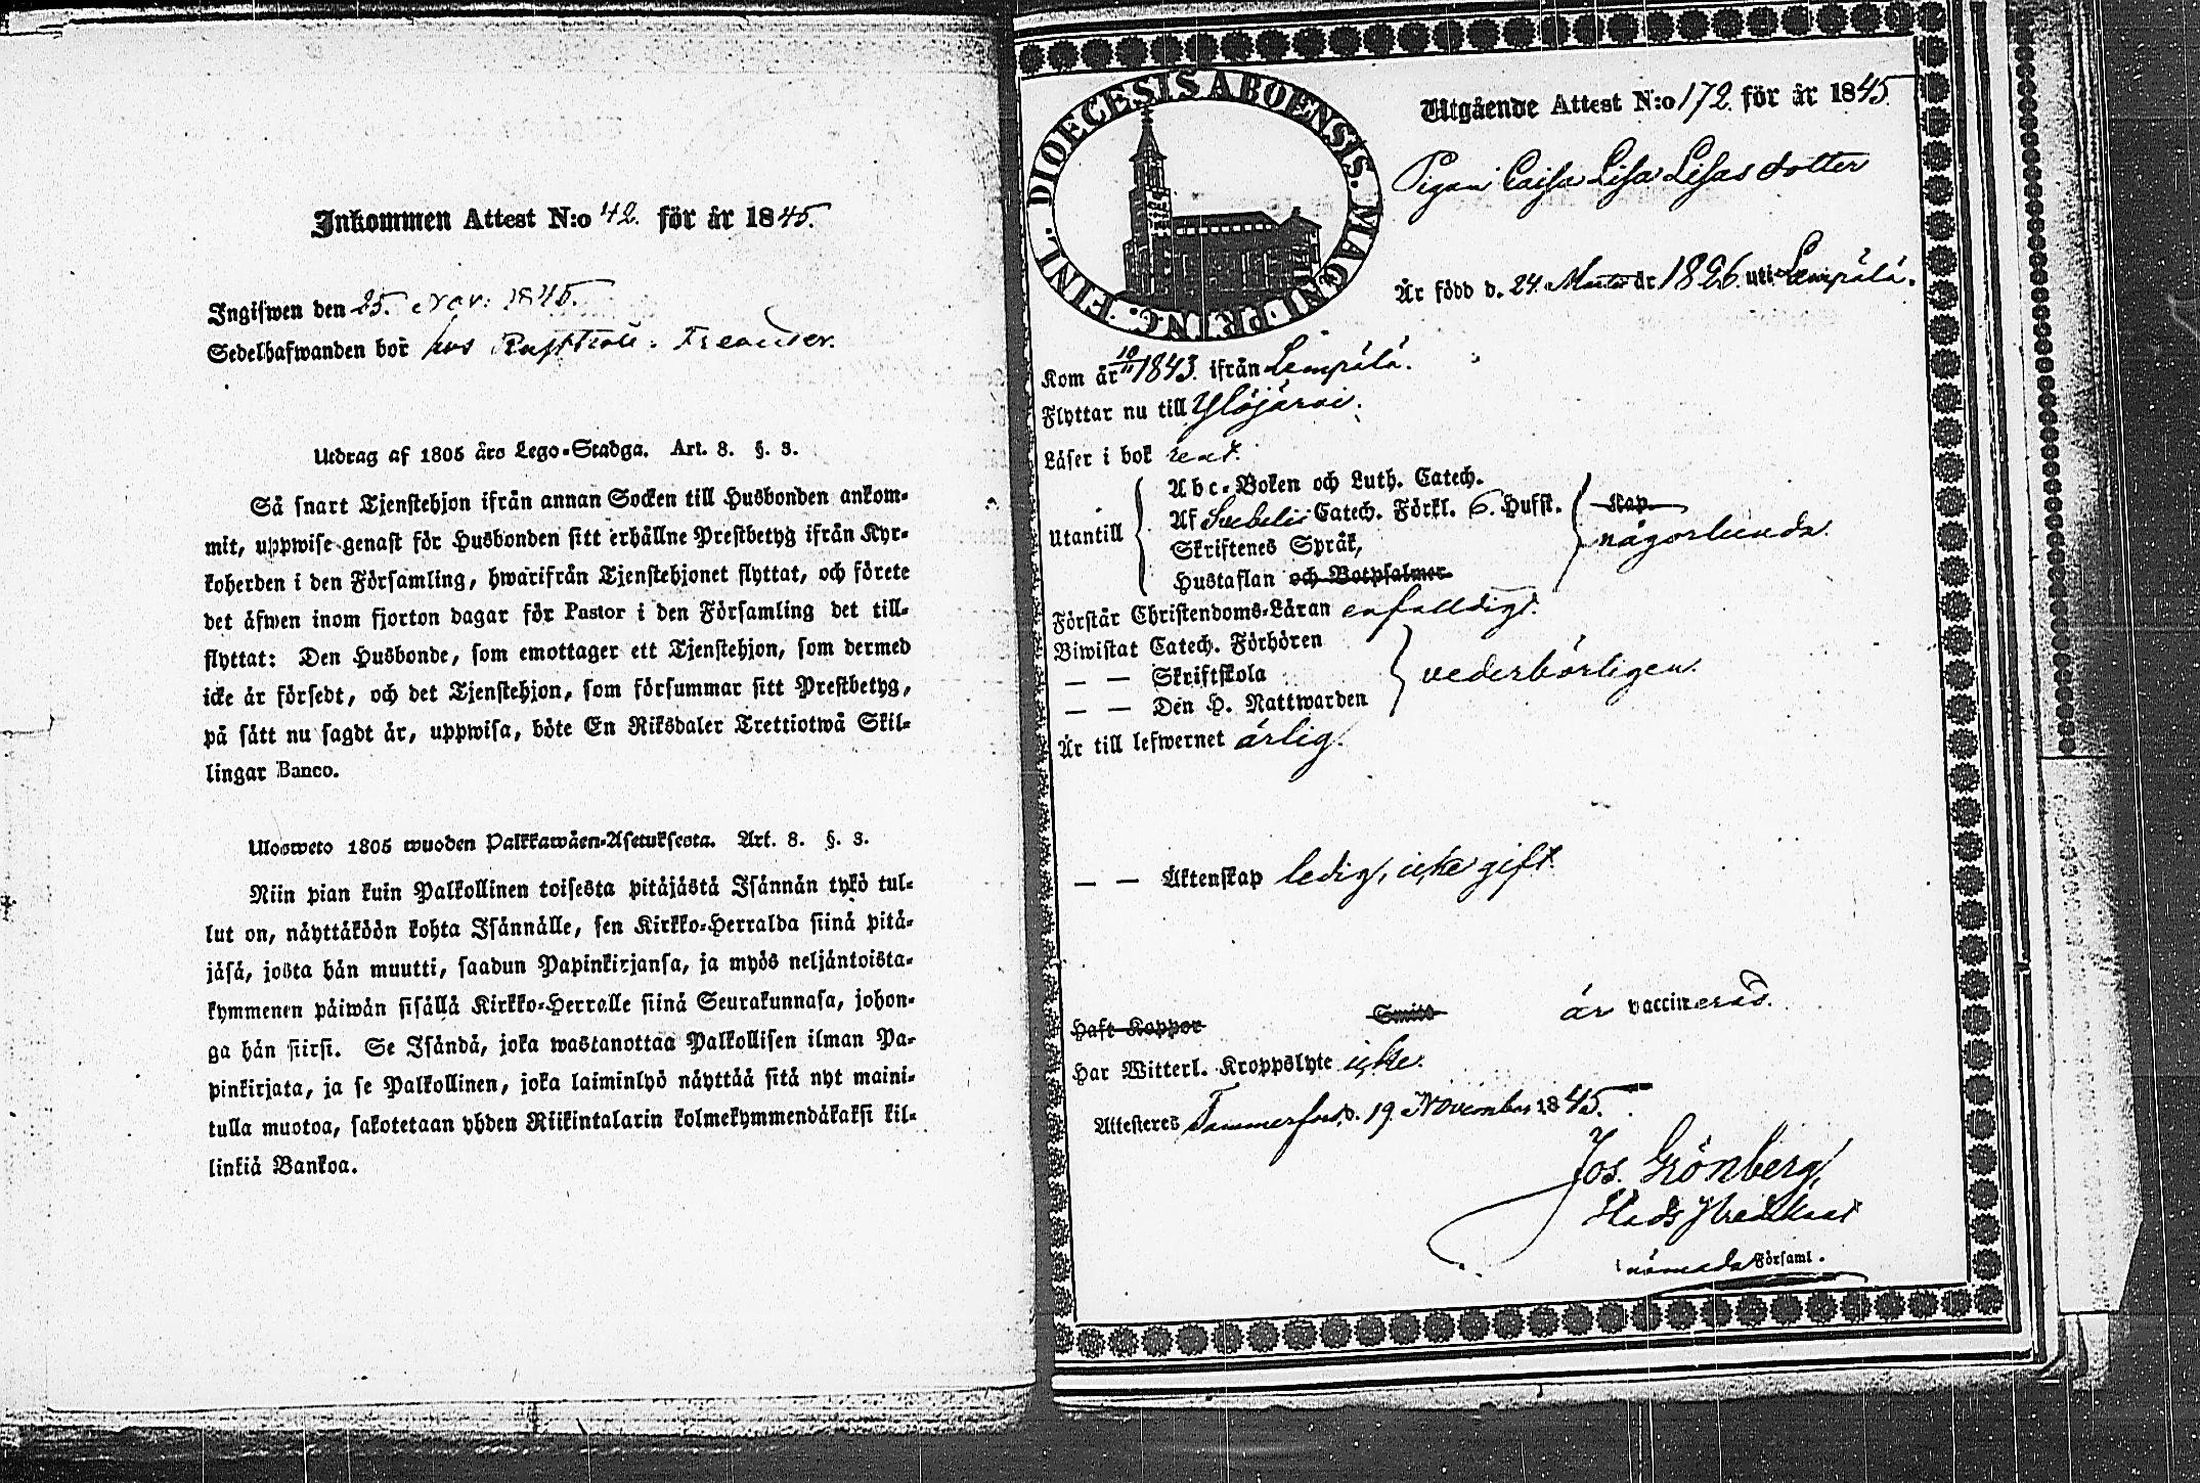 Inkommen Attest N:o 42. för år 1845.
Ingifwen den 25. Nov: 1845.
Sedelhafwanden bor hos
Utdrag af 1805 års Lego-Stadga. Art. 8. §. 3.
Så snart Tjenstehjon ifrån annan Socken till Husbonden ankom-
mit, uppwise genast för Husbonden sitt erhållne Prestbetyg ifrån Kyr-
koherden i den Församling, hwarifrån Tjenstehjonet flyttat, och förete
det äfwen inom fjorton dagar för Pastor i den Församling det till-
flyttat: Den Husbonde, som emottager ett Tjenstehjon, som dermed
icke är försedt, och det Tjenstehjon, som försummar sitt Prestbetyg,
på sätt nu sagdt är, uppwisa, böte En Riksdaler Trettiotwå Skil-
lingar Banco.
Ulosweto 1805 wuoden Palkkawäen-Asetuksesta. Art. 8. §. 3.
Niin pian kuin Palkollinen toisesta pitäjästä Isännän tykö tul-
lut on, näyttäköön kohta Isännälle, sen Kirkko-Herralda siinä pitä-
jäsä, josta hän muutti, saadun Papinkirjansa, ja myös neljäntoista-
kymmenen päiwän sisällä Kirkko-Herralle siinä Seurakunnasa, johon-
ga hän siirsi. Se Isändä, joka wastanottaa Palkollisen ilman Pa-
pinkirjata, ja se Palkollinen, joka laiminlyö näyttää sitä nyt maini-
tulla muotoa, sakotetaan yhden Riikintalarin kolmekymmendäkaksi kil-
linkiä Bankoa.
DIOECESIS ABOENSIS. MAGNI PR:NC. FINL.
Utgående Attest N:o 172. för år 1845.
Pigan Caisa Lisa Lisasdotter
Är född d. 24. Martii år 1826. uti Lempälä.
Kom år 10/11 1843. ifrån Lempälä.
Flyttar nu till Ylöjärvi.
Läser i bok rent.
Utantill
Abc-Boken och Luth. Catech.
Af Svebelii Catech. Förkl. 6. Hufst.
Skriftenes Språk,
Hustaflan och Botpsalmer
Kap.
någorlunda.
Förstår Christendoms-Läran enfalldigt.
Biwistat Catech. Förhören
— — Skriftskola
— — Den H. Nattwarden
vederbörligen.
Är till lefwernet ärlig.
— — Äktenskap ledig, icke gift.
Haft Koppor Smitto är vaccinerad.
Har Witterl. Kroppslyte icke.
Attesteres Tammerfors, d. 19. November 1845.
Jos. Grönberg,
nämnda Församl.